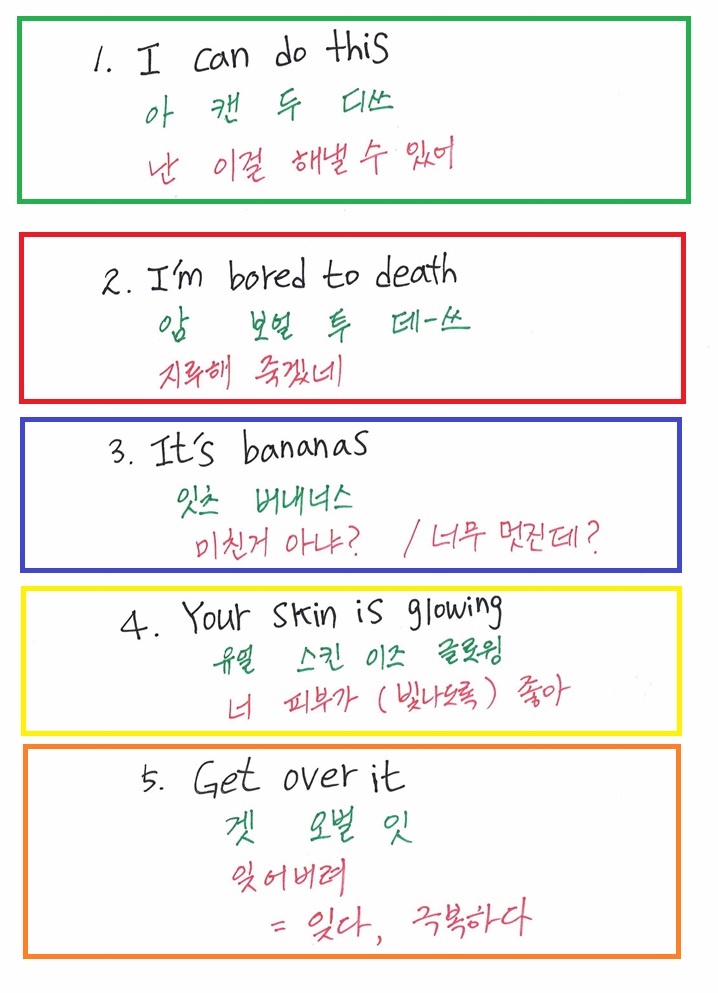 1. I can do this
아 캔 두 디쓰
난 이걸 해낼 수 있어
2. I'm bored to death
암 보얼 투 데-쓰
지루해 죽겠네
3. It's bananas
잇츠 버내너스
미친거 아냐? / 너무 멋진데?
4. Your skin is glowing
유얼 스킨 이즈 글로윙
너 피부가 (빛나도록) 좋아
5. Get over it
겟 오벌 잇
잊어버려
= 잊다, 극복하다